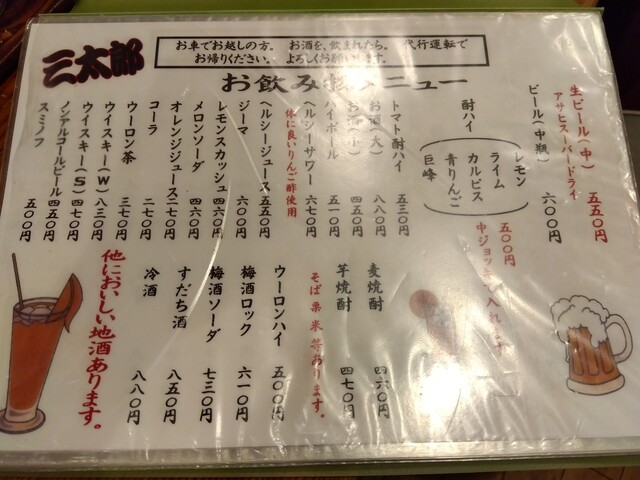 三太郎
お車でお越しの方。お酒を、飲まれたら。代行運転で
お帰りください。よろしくお願いします。
お飲み物メニュー
生ビール(中) 五五〇円
アサヒスーパードライ
ビール(中瓶) 六〇〇円
酎ハイ
レモン
ライム
カルピス
青りんご
巨峰
五〇〇円
中ジョッキで入れます
トマト酎ハイ 五三〇円
お酒(大) 八八〇円
お酒(小) 四五〇円
ハイボール 五一〇円
ヘルシーサワー 六七〇円
体に良いりんご酢使用
ヘルシージュース 五五〇円
ジーマ 六〇〇円
レモンスカッシュ 四六〇円
メロンソーダ 四六〇円
オレンジジュース 二七〇円
コーラ 二七〇円
ウーロン茶 三七〇円
ウイスキー(W) 八三〇円
ウイスキー(S) 四七〇円
ノンアルコールビール 四五〇円
スミノフ 五〇〇円
麦焼酎 四六〇円
芋焼酎 四七〇円
そば 栗 米 等あります。
ウーロンハイ 五〇〇円
梅酒ロック 六一〇円
梅酒ソーダ 七三〇円
すだち酒 八五〇円
冷酒 八八〇円
他においしい地酒あります。